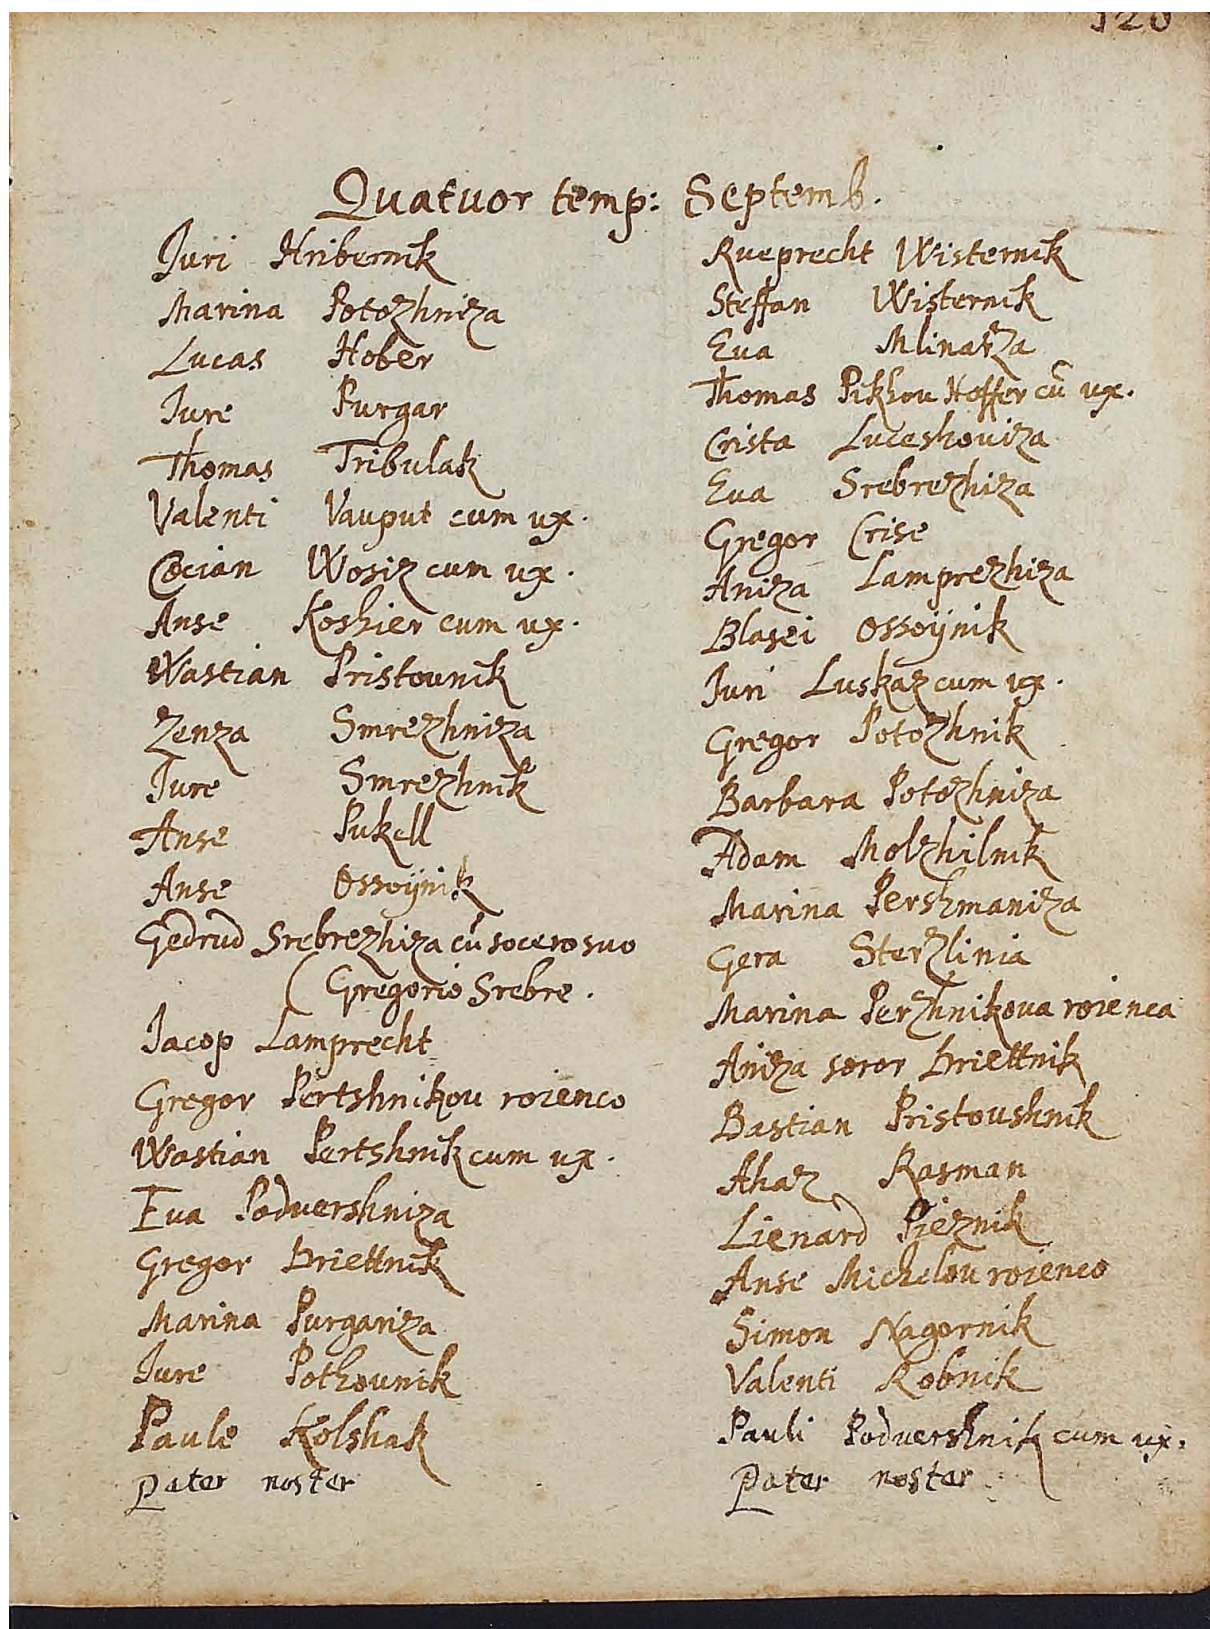 Quatuor temp: Septemb.
Juri Hribernik
Marina Potozhniza
Lucas Hober
Jure Purgar
Thomas Tribulak
Valenti Vauput cum ux.
Cocian Wosiz cum ux.
Anse Koshier cum ux.
Wastian Pristounik
Zenza Smrezhniza
Jure Smrezhnik
Anse Pukell
Anse Ossoÿnik
Gedrud Srebrezhiza cū socero suo
(Gregorio Srebre.
Jacop Lamprecht
Gregor Pertshnikou roienco
Wastian Pertshnik cum ux.
Eva Podvershniza
Gregor Driettnik
Marina Purgariza
Jure Pothounik
Paule Kolshak
Pater noster
Rueprecht Wisternik
Steffan Wisternik
Eua Mlinarza
Thomas Pikhou Hoffer cū ux.
Crista Luceshouiza
Eua Srebrezhiza
Gregor Crise
Aniza Lamprezhiza
Blasei Ossoÿnik
Juri Luskaz cum ux.
Gregor Potozhnik
Barbara Potozhniza
Adam Molzhilnik
Marina Pershmaniza
Gera Sterzlinia
Marina Perzhnikoua roienca
Aniza soror Driettnik
Bastian Pristoushnik
Ahaz Rasman
Lienard Pieznik
Anse Michelou roienco
Simon Nagornik
Valenti Robnik
Pauli Poduershnik cum ux.
Pater noster